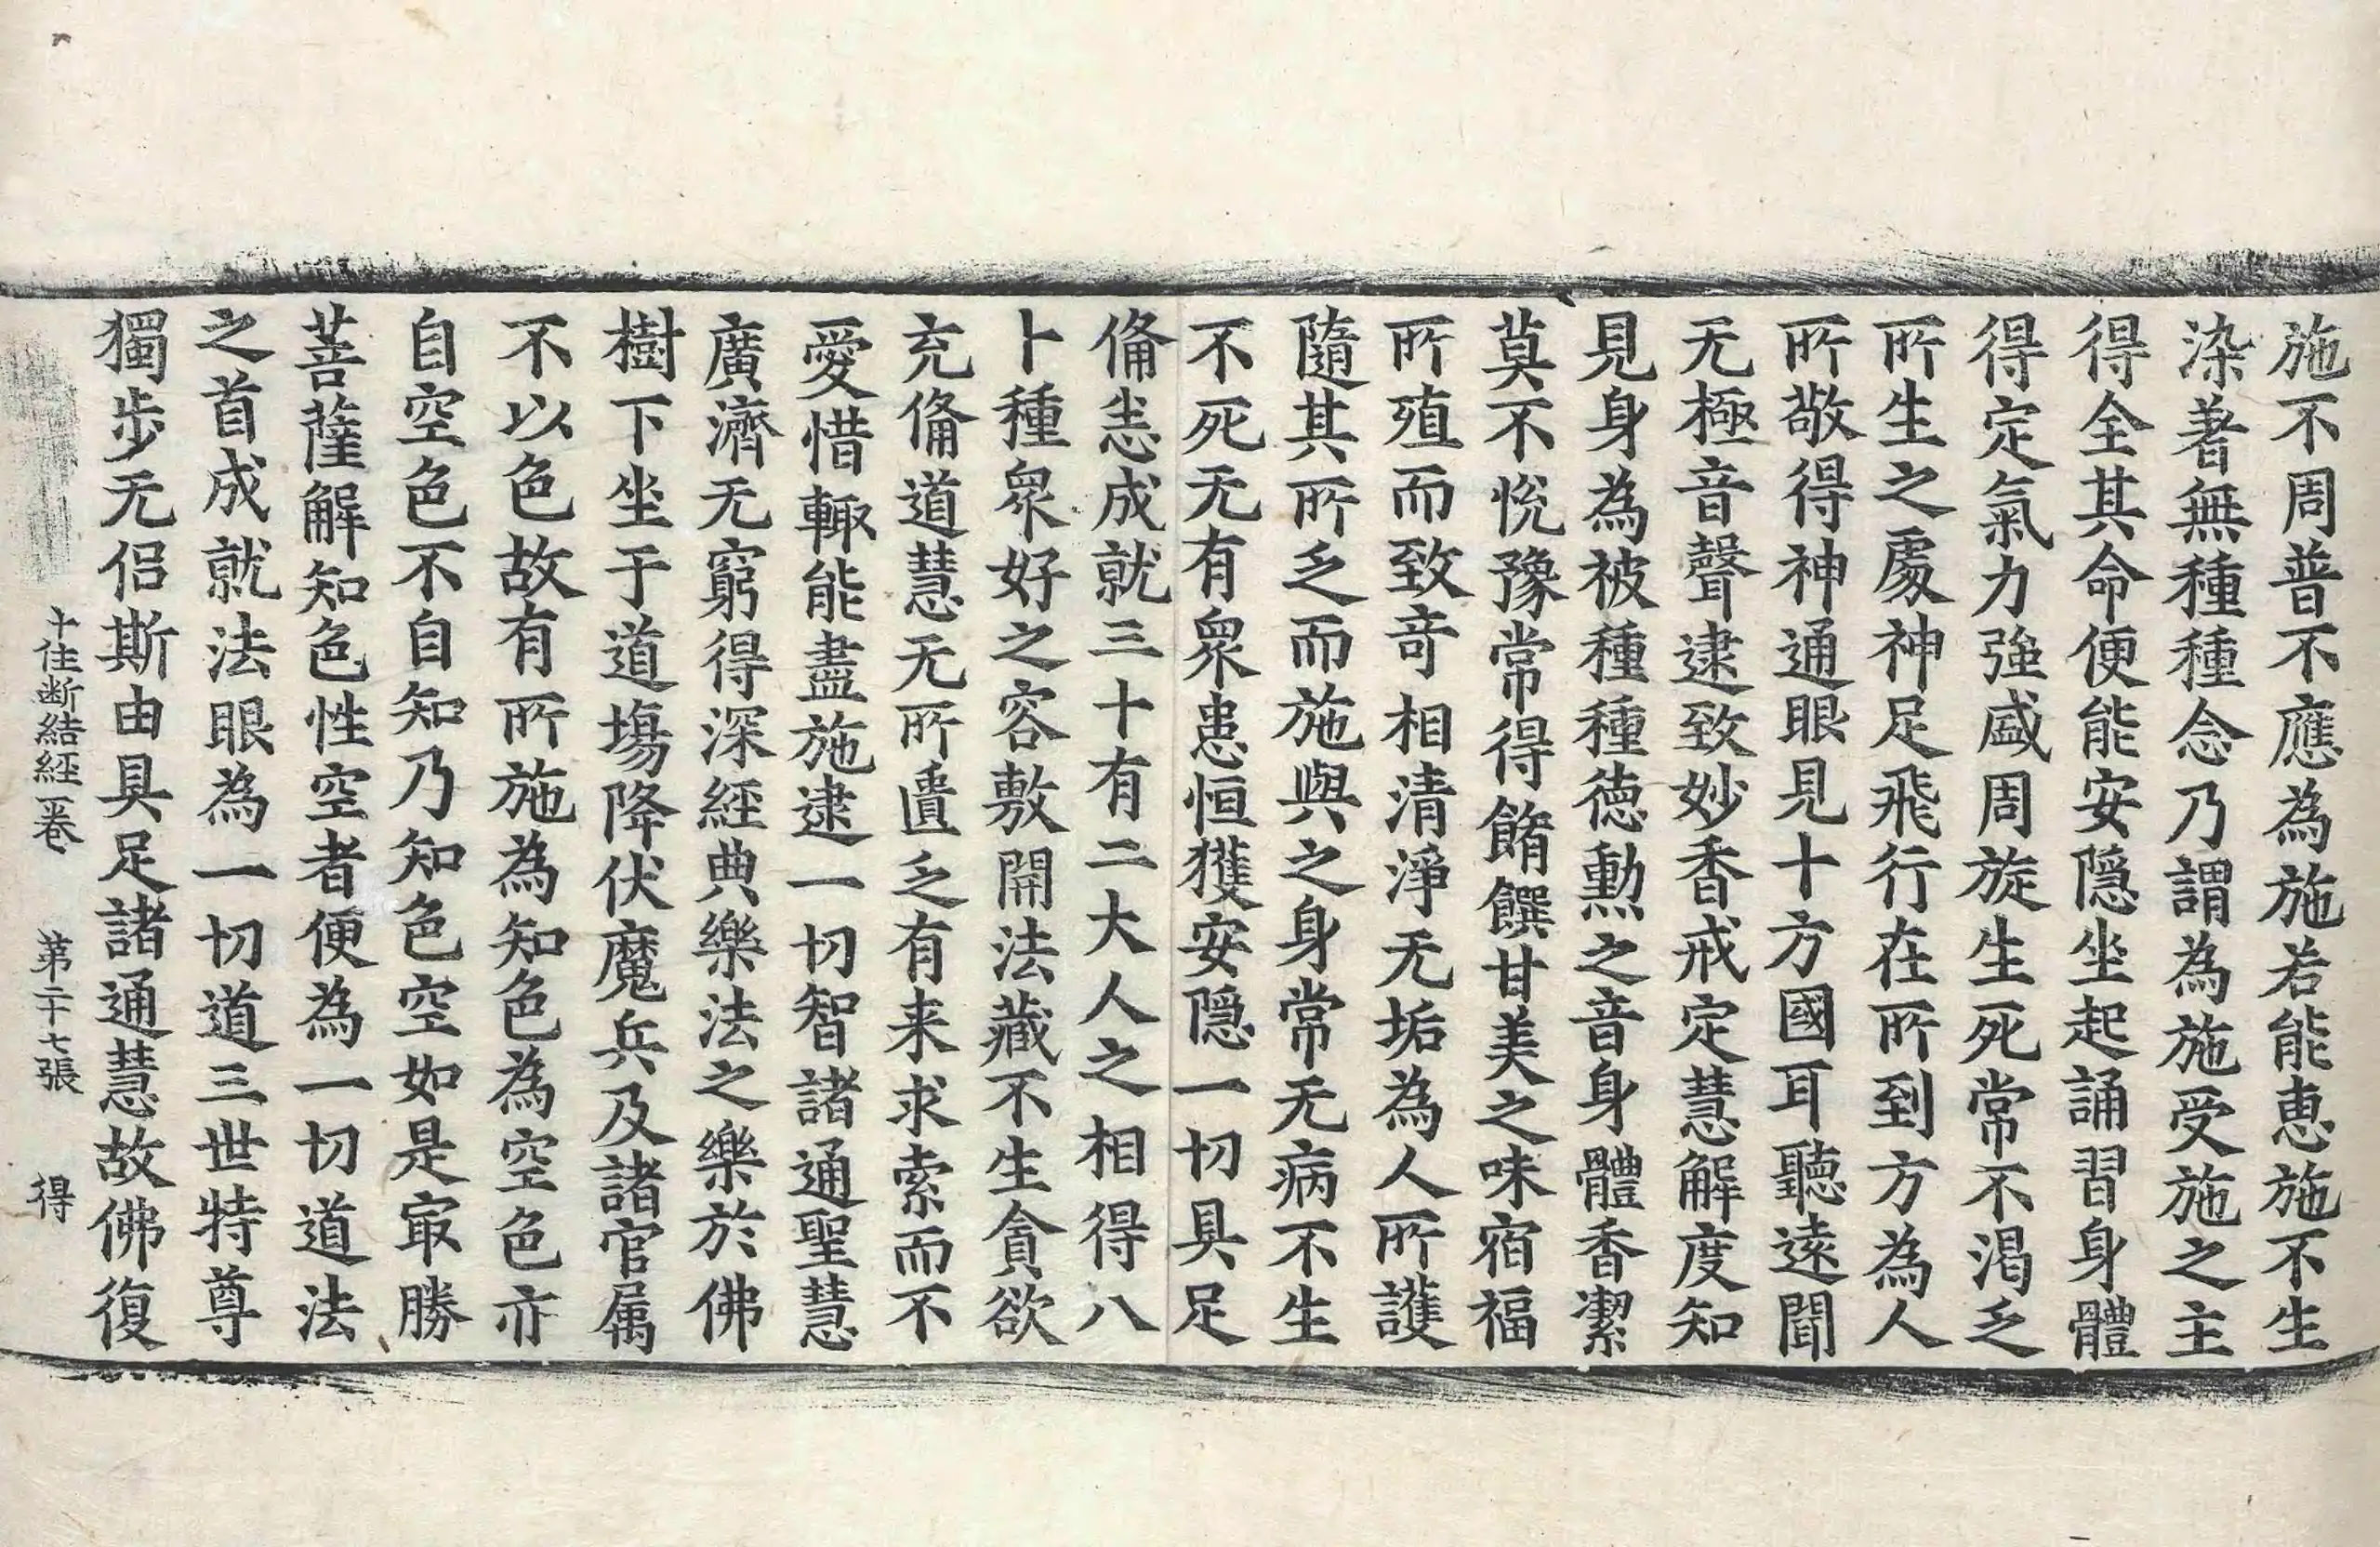 施不周普不應為施若能惠施不生
染著無種種念乃謂為施受施之主
得全其命便能安隱坐起誦習身體
得定氣力強盛周旋生死常不渴乏
所生之處神足飛行在所到方為人
所敬得神通眼見十方國耳聽遠聞
无極音聲逮致妙香戒定慧解度知
見身為被種種德勳之音身體香潔
莫不悅豫常得餚饌甘美之味宿福
所殖而致奇相清淨无垢為人所護
隨其所乏而施與之身常无病不生
不死无有眾患恒獲安隱一切具足
俻恙成就三十有二大人之相得八
十種眾好之容敷開法藏不生貪欲
充俻道慧无所匱乏有来求索而不
愛惜輙能盡施逮一切智諸通聖慧
廣濟无窮得深經典樂法之樂於佛
樹下坐于道場降伏魔兵及諸官属
不以色故有所施為知色為空色亦
自空色不自知乃知色空如是㝡勝
菩薩解知色性空者便為一切道法
之首成就法眼為一切道三世特尊
獨步无侣斯由具足諸通慧故佛復
十住断結經一卷 第二十七張 得